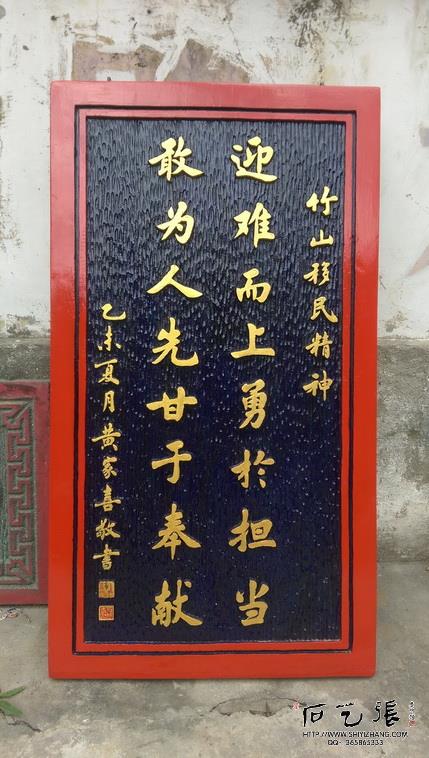 竹山移民精神
迎难而上勇於担当
敢为人先甘于奉献
乙未夏月黄家喜敬书
石艺張
HTTP://WWW.SHIYIZHANG.COM
QQ: 365865333